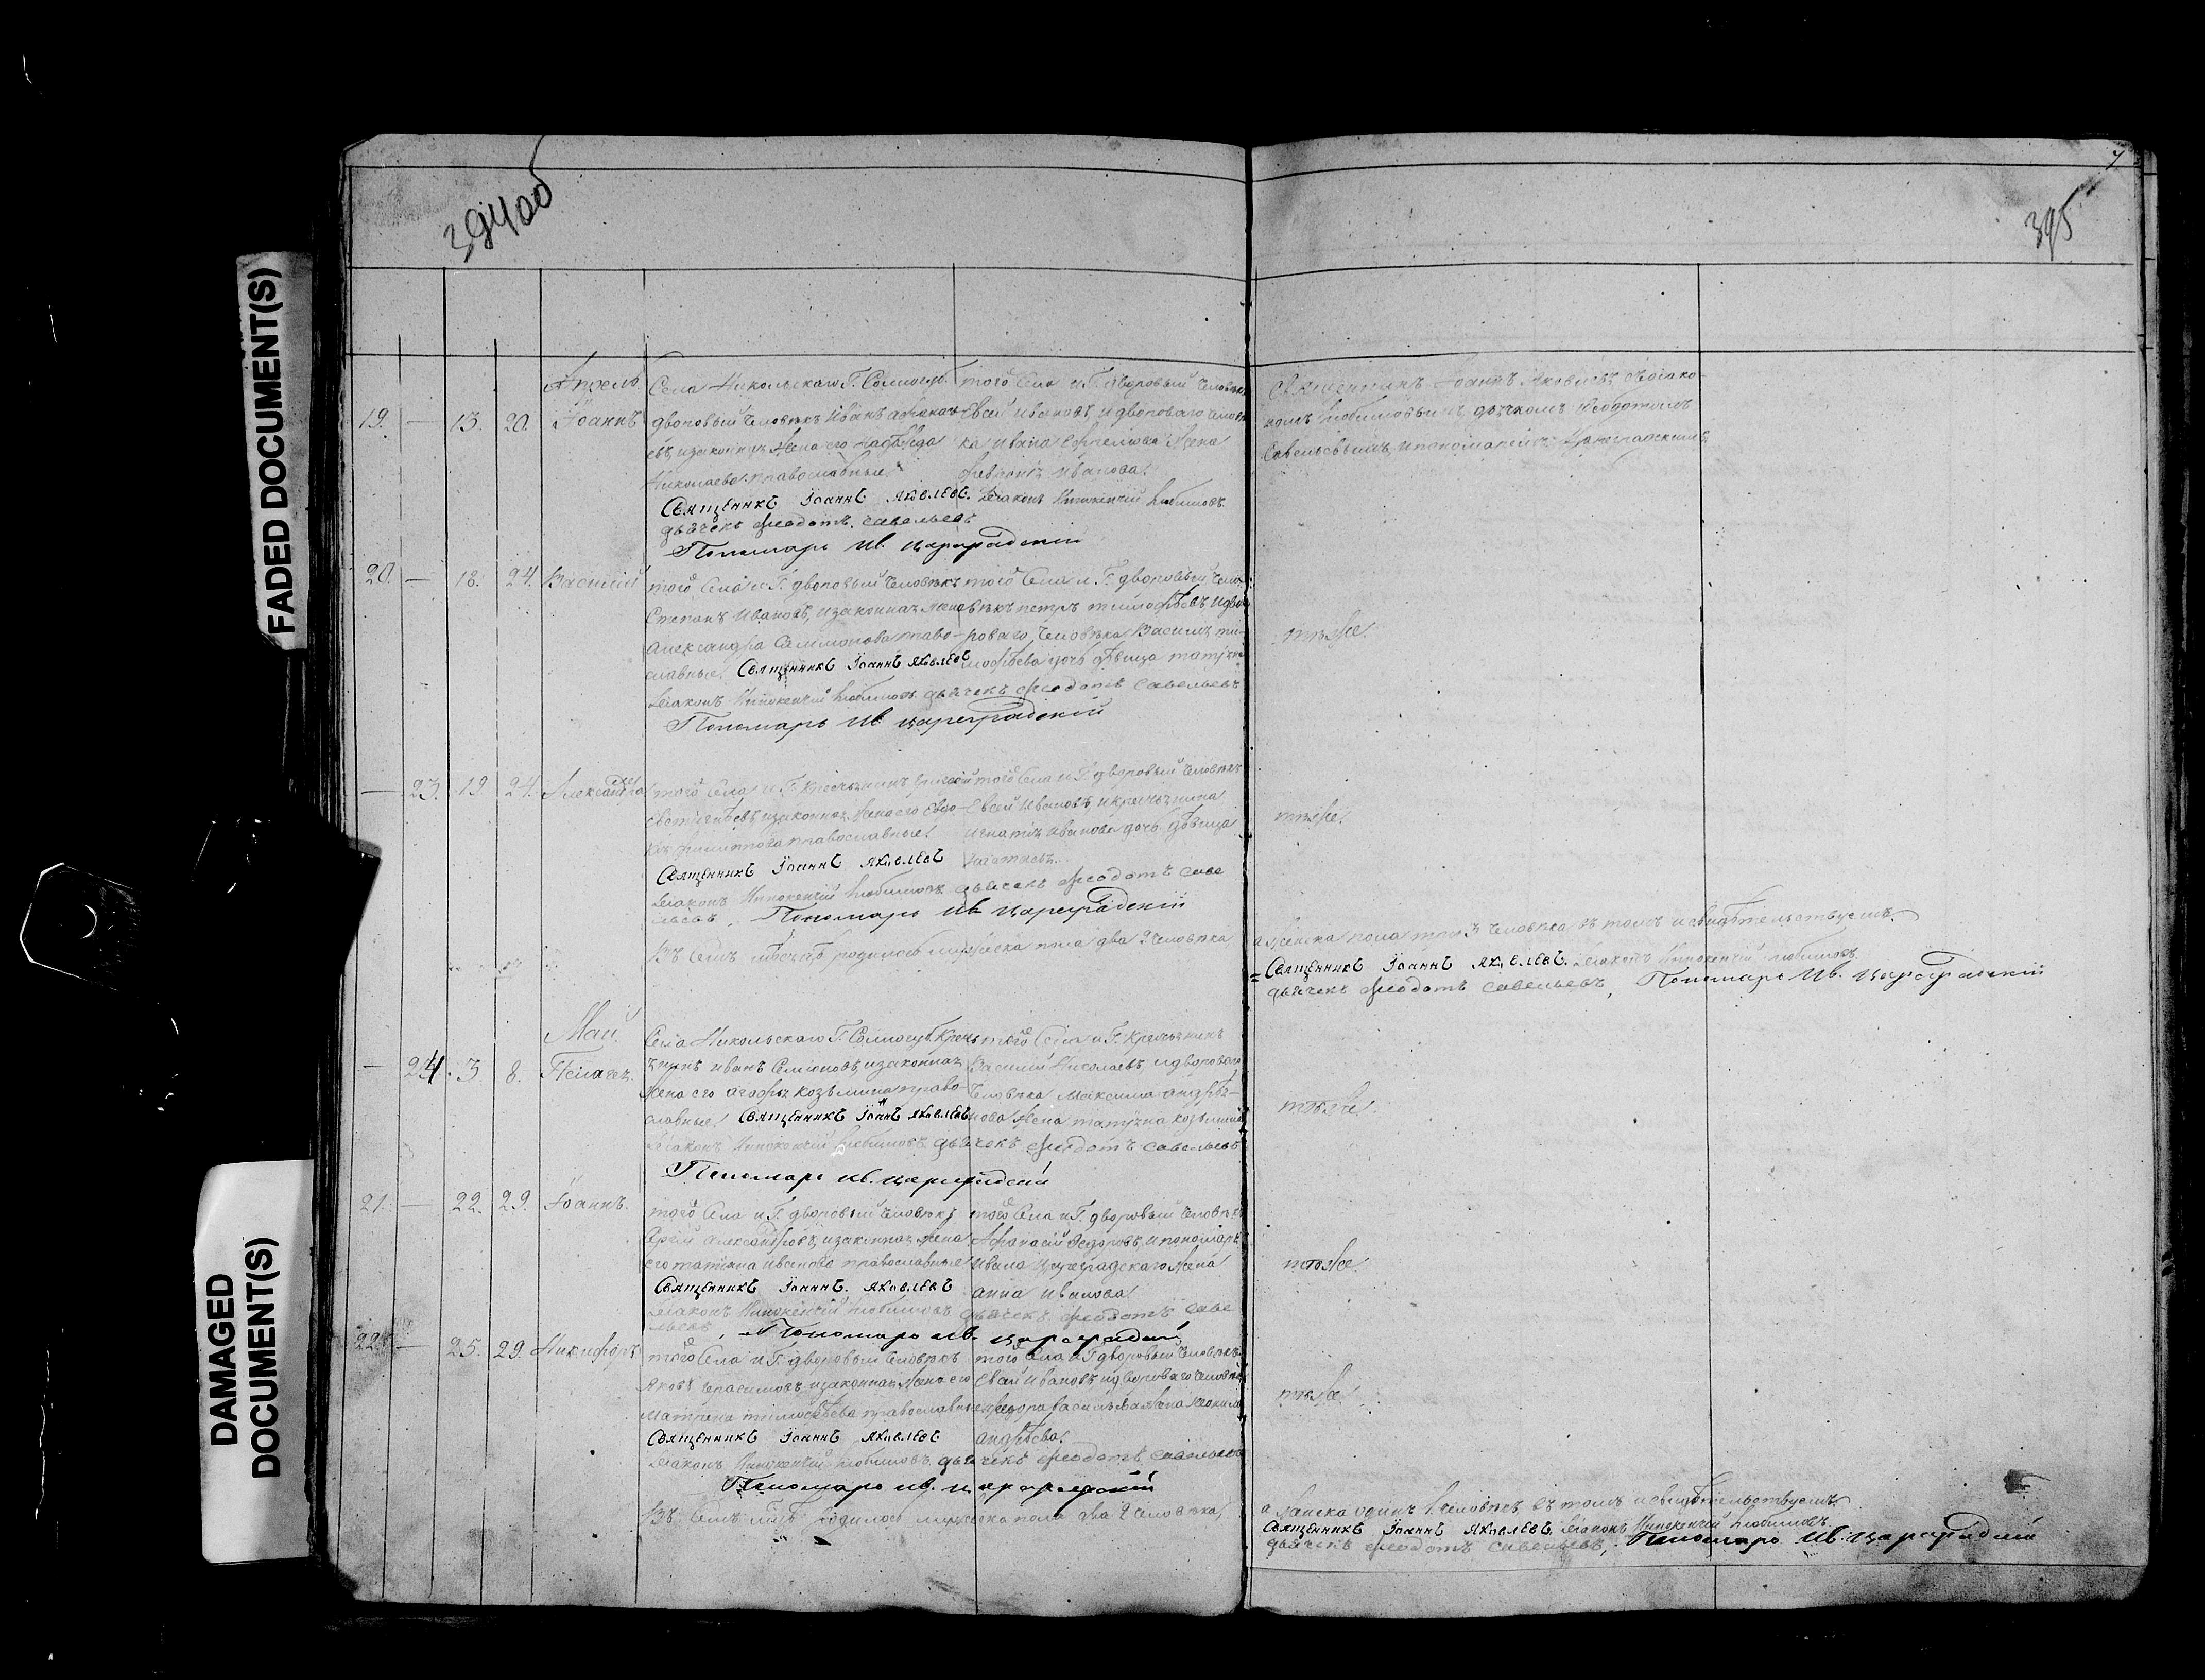 FADED DOCUMENT(S)
DAMAGED
DOCUMENT(S)
394об
7
395
Апрель
19. — 13. 20. Іоаннъ
Села Никольскаго Г. Соллогуб
дворовый человѣкъ Иванъ
евъ, и законная жена его Надежда
Николаева православные.
того Села и Г. дворовый человѣкъ
Евсей Ивановъ, и двороваго человѣ
ка Ивана жена
Ивановa.
Священникъ Іоаннъ Яковлевъ. Діаконъ Иннокентій Любимовъ
дьячекъ Феодотъ Савельевъ
Пономарь Ив. Цареградскій
Священникъ Іоаннъ Яковлевъ, съ діако-
номъ Любимовымъ, дьячкомъ Феодотомъ
Савельевымъ и пономаремъ Цареградскимъ
20. — 18. 24. Василій
того Села и Г. дворовый человѣкъ
Степанъ Ивановъ, и законная жена
Александра право-
славные.
того Села и Г. дворовый чело-
вѣкъ Петръ Тимофѣевъ и дво
роваго человѣка Василія Ти-
мофѣева дочь дѣвица
Священникъ Іоаннъ Яковлевъ
Діаконъ Иннокентій Любимовъ дьячекъ Феодотъ Савельевъ
Пономарь Ив. Цареградскій
тѣже.
— 23. 19 24. Александра
того Села и Г. крестьянинъ
Евстигнѣевъ, и законная жена его Евдо-
кія Филиппова православные.
того Села и Г. дворовый человѣкъ
Евсей Ивановъ, и крестьянина
Игнатія Иванова дочь дѣвица
Священникъ Іоаннъ Яковлевъ
Діаконъ Иннокентій Любимовъ дьячекъ Феодотъ Саве
льевъ, Пономарь Ив. Цареградскій
тѣже.
Въ семъ мѣсяцѣ родилось мужеска пола два 2 человѣка
а женска пола три 3 человѣка въ томъ и свидѣтельствуемъ.
Священникъ Іоаннъ Яковлевъ. Діаконъ Иннокентій Любимовъ.
дьячекъ Феодотъ Савельевъ, Пономарь Ив. Цареградскій
Май.
— 24. 3 8. Пелагея.
Села Никольскаго Г. Соллогуб крестья
нинъ Иванъ Семіоновъ, и законная
жена его Агафья Козьмина право-
славные.
того Села и Г. крестьянинъ
Василій Николаевъ, и двороваго
человѣка Максима Андрѣя-
нова жена Татьяна Козьмина
Священникъ Іоаннъ Яковлевъ
Діаконъ Иннокентій Любимовъ дьячекъ Феодотъ Савельевъ
Пономарь Ив. Цареградскій
тѣже.
21. — 22. 29. Іоаннъ.
того Села и Г. дворовый человѣкъ
Сергѣй Александровъ, и законная жена
его Татіана Иванова православные
того Села и Г. дворовый человѣкъ
Афанасій Федоровъ, и пономаря
Ивана Цареградскаго жена
Анна Иванова.
Священникъ Іоаннъ. Яковлевъ
Діаконъ Иннокентій Любимовъ дьячекъ Феодотъ Саве
льевъ, Пономарь Ив. Цареградскій
тѣже.
22. — 25. 29. Никифоръ
того Села и Г. дворовый человѣкъ
Яковъ Герасимовъ, и законная жена его
Матрена Тимофѣева православные
того Села и Г. дворовый человѣкъ
Евсей Ивановъ, и двороваго человѣка
Федора Васильева жена
Андрѣева.
Священникъ Іоаннъ Яковлевъ
Діаконъ Иннокентій Любимовъ дьячекъ Феодотъ Савельевъ
Пономарь Ив. Цареградскій
тѣже.
Въ семъ м-цѣ родилось мужеска пола два 2 человѣка,
а женска одинъ 1 человѣкъ, въ томъ и свидѣтельствуемъ.
Священникъ Іоаннъ Яковлевъ. Діаконъ Иннокентій Любимовъ.
дьячекъ Феодотъ Савельевъ, Пономарь Ив. Цареградскій